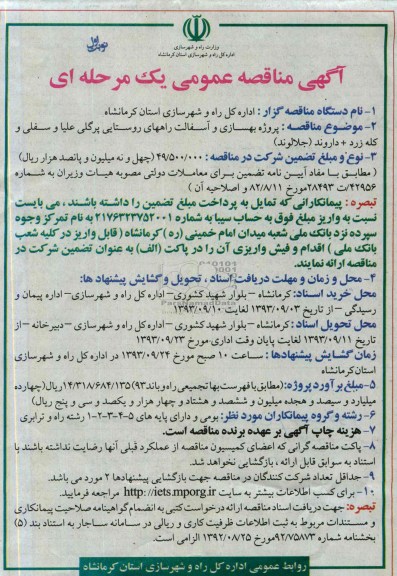 نوبت اول
وزارت راه و شهرسازی
اداره کل راه و شهرسازی استان کرمانشاه
آگهی مناقصه عمومی یک مرحله ای
۱- نام دستگاه مناقصه گزار : اداره کل راه و شهرسازی استان کرمانشاه
۲- موضوع مناقصه : پروژه بهسازی و آسفالت راههای روستایی پرگلی علیا و سفلی و
کله زرد + داروند (جلالوند)
۳- نوع و مبلغ تضمین شرکت در مناقصه : ۴۹/۵۰۰/۰۰۰ (چهل و نه میلیون و پانصد هزار ریال)
( مطابق با مفاد آیین نامه تضمین برای معاملات دولتی مصوبه هیات وزیران به شماره
۴۲۹۵۶/ت۲۸۴۹۳ مورخ ۸۲/۸/۱۱ و اصلاحیه آن )
تبصره : پیمانکارانی که تمایل به پرداخت مبلغ تضمین را داشته باشند ، می بایست
نسبت به واریز مبلغ فوق به حساب سیبا به شماره ۲۱۷۶۳۲۳۷۵۲۰۰۱ به نام تمرکز وجوه
سپرده نزد بانک ملی شعبه میدان امام خمینی (ره) کرمانشاه (قابل واریز در کلیه شعب
بانک ملی ) اقدام و فیش واریزی آن را در پاکت (الف) به عنوان تضمین شرکت در
مناقصه ارائه نمایند.
۴- محل و زمان و مهلت دریافت اسناد ، تحویل و گشایش پیشنهاد ها:
محل خرید اسناد: کرمانشاه – بلوار شهید کشوری – اداره کل راه و شهرسازی – اداره پیمان و
رسیدگی – از تاریخ ۱۳۹۳/۰۹/۰۳ لغایت ۱۳۹۳/۰۹/۱۰
محل تحویل اسناد : کرمانشاه – بلوار شهید کشوری – اداره کل راه و شهرسازی – دبیرخانه – از
تاریخ ۱۳۹۳/۰۹/۱۱ لغایت پایان وقت اداری مورخ ۱۳۹۳/۰۹/۲۳
زمان گشایش پیشنهادها : ساعت ۱۰ صبح مورخ ۱۳۹۳/۰۹/۲۴ در اداره کل راه و شهرسازی
استان کرمانشاه
۵- مبلغ برآورد پروژه: (مطابق با فهرست بها تجمیعی راه و باند ۹۳) ۱۴/۳۱۸/۶۸۴/۱۳۵ ریال (چهارده
میلیارد و سیصد و هجده میلیون و ششصد و هشتاد و چهار هزار و یکصد و سی و پنج ریال)
۶- رشته و گروه پیمانکاران مورد نظر: بومی و دارای پایه های ۵-۴-۳-۲-۱ رشته راه و ترابری
۷- هزینه چاپ آگهی بر عهده برنده مناقصه است.
۸- پاکت مناقصه گرانی که اعضای کمیسیون مناقصه از عملکرد قبلی آنها رضایت نداشته باشند با
استناد به سوابق قابل ارائه ، بازگشایی نخواهد شد.
۹- حداقل تعداد شرکت کنندگان در مناقصه جهت بازگشایی پیشنهادها ۲ مورد می باشد.
۱۰- برای کسب اطلاعات بیشتر به سایت http://iets.mporg.ir مراجعه فرمایید.
تبصره: جهت دریافت اسناد مناقصه ارائه درخواست کتبی به انضمام گواهینامه صلاحیت پیمانکاری
و مستندات مربوط به ثبت اطلاعات ظرفیت کاری و ریالی در سامانه ساجار به استناد بند (۵)
بخشنامه شماره ۹۲/۷۵۸۷۳ مورخ ۱۳۹۲/۰۸/۲۵ الزامی است.
روابط عمومی اداره کل راه و شهرسازی استان کرمانشاه